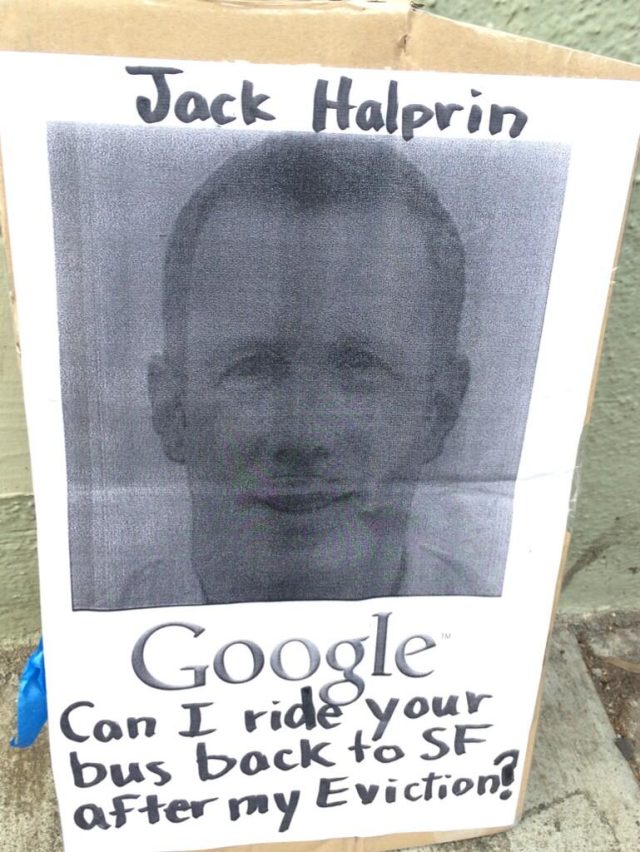 Jack Halprin
Google™
Can I ride your
bus back to SF
after my Eviction?